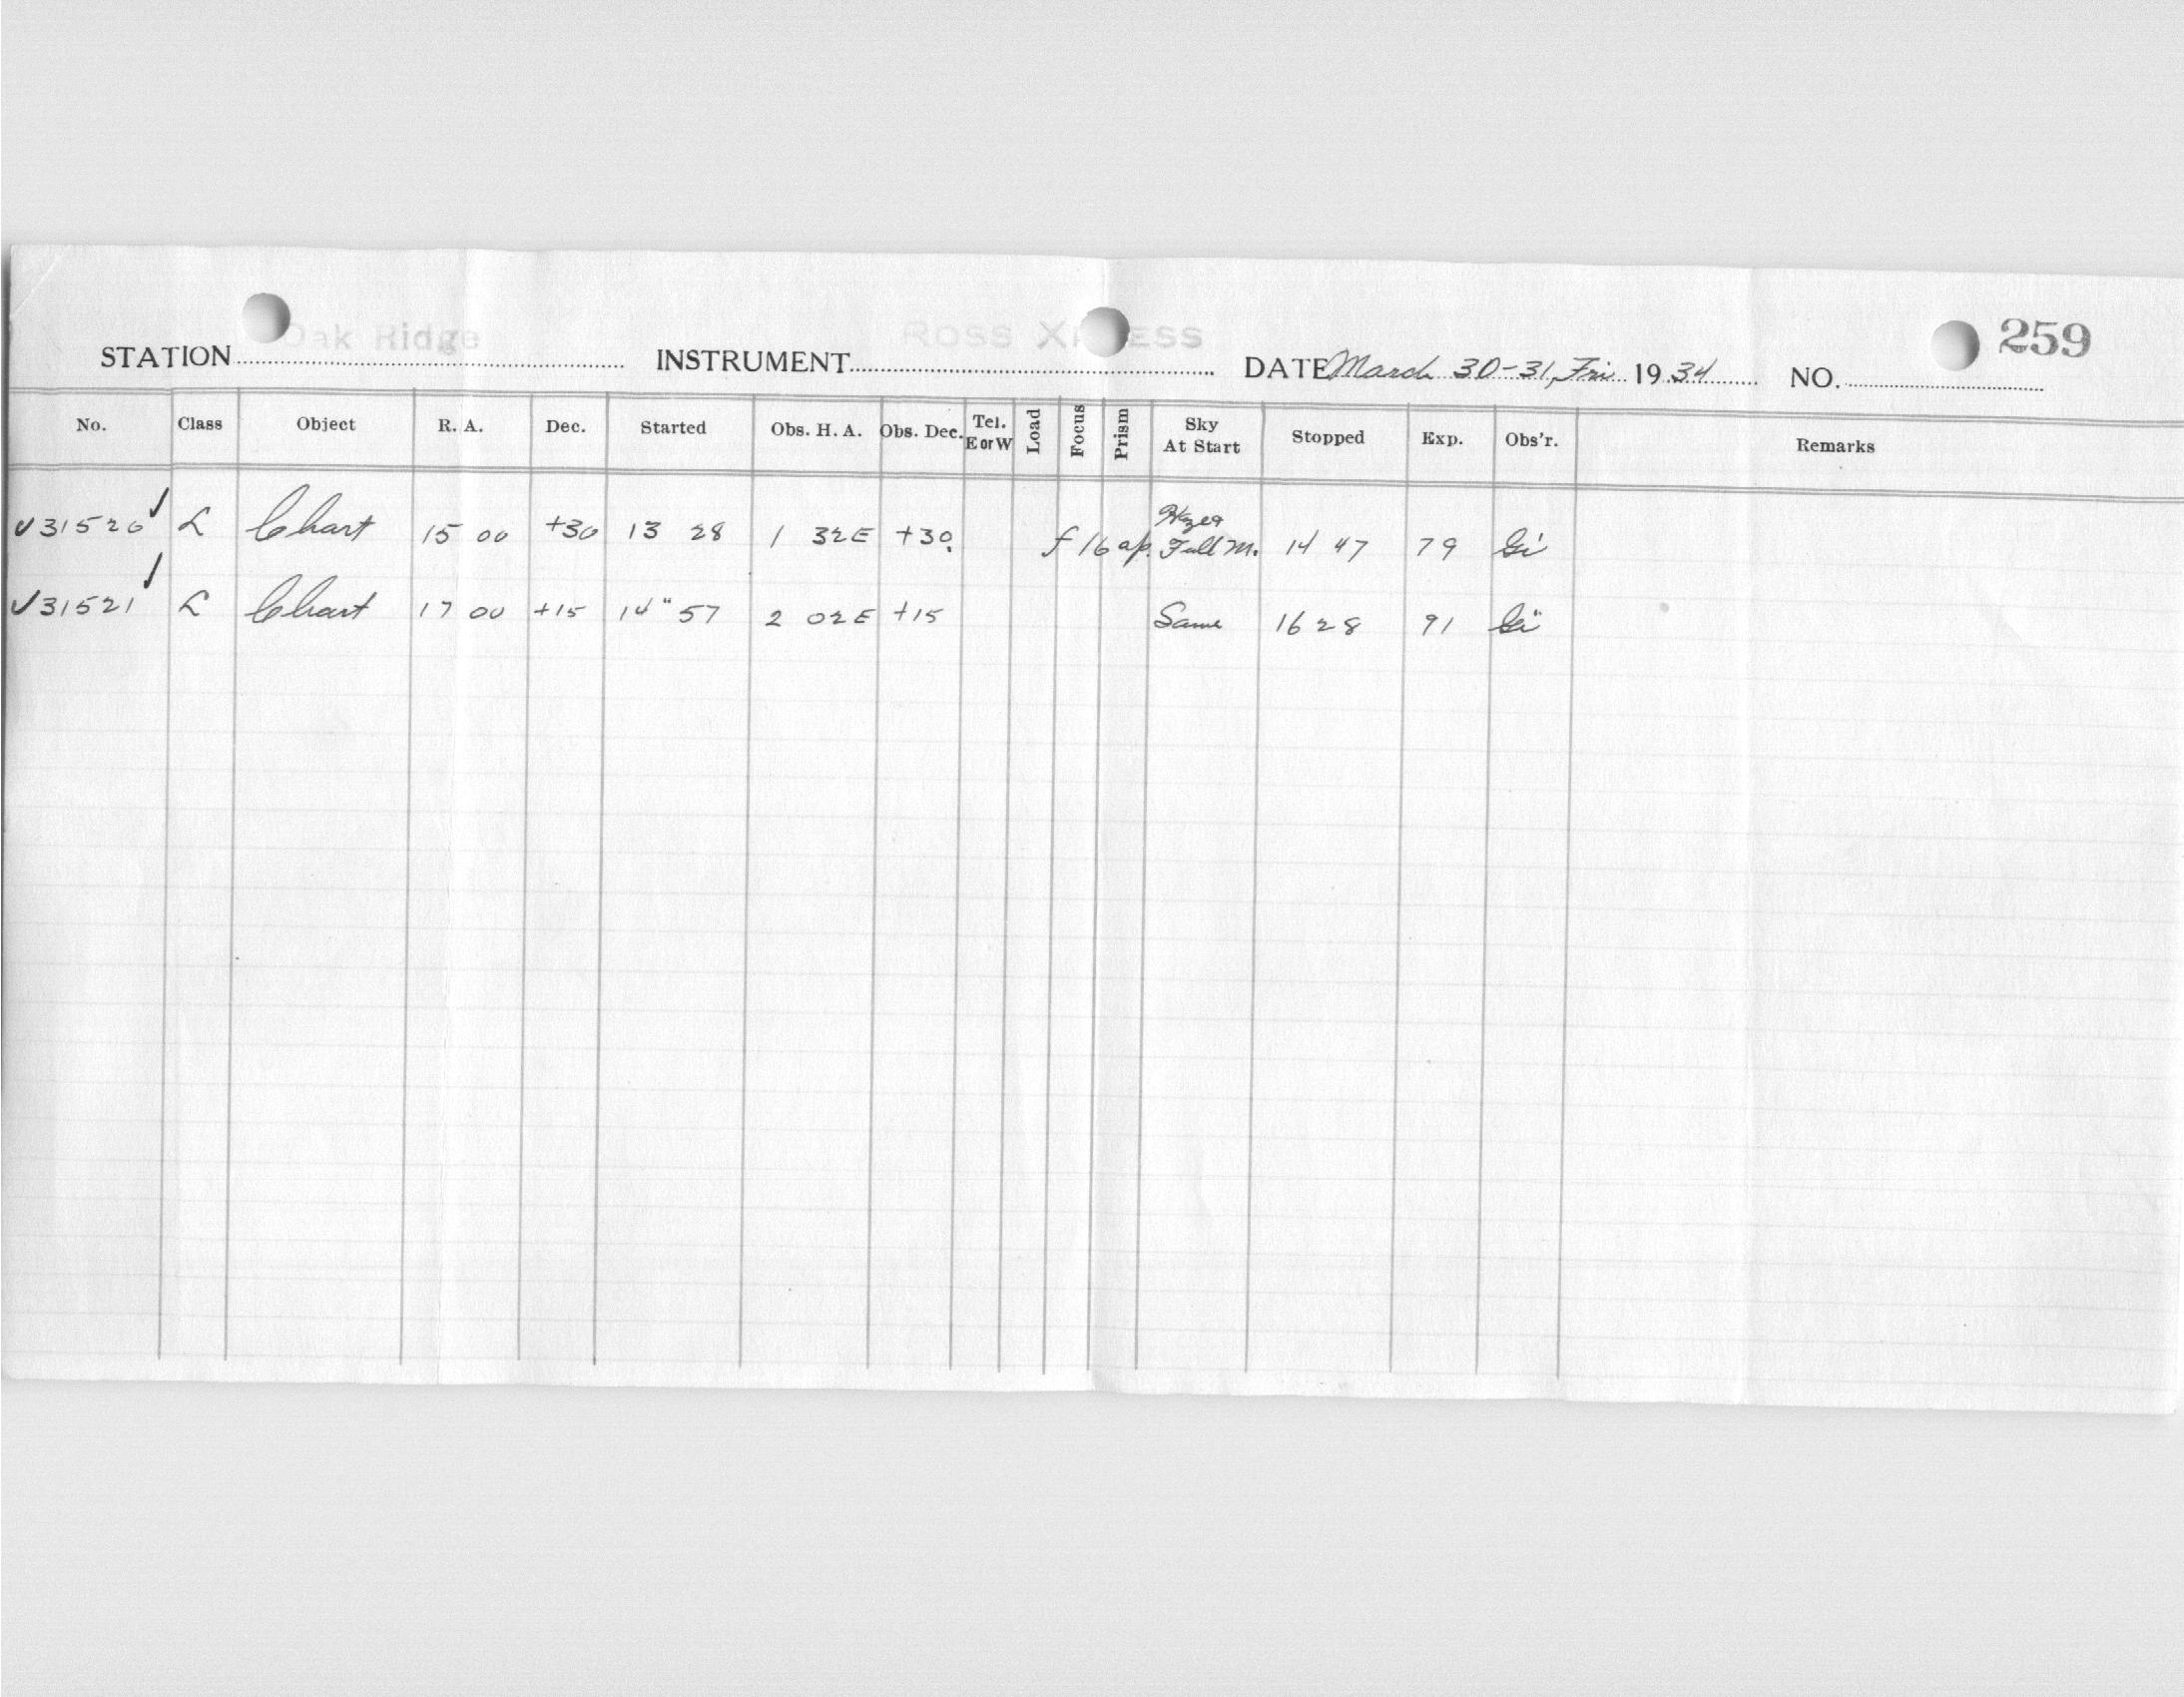 Oak Ridge Ross XPRESS 259
STATION INSTRUMENT DATE March 30-31, Fri 1934 NO.
No. Class Object R. A. Dec. Started Obs. H. A. Obs. Dec. Tel. E or W Load Focus Prism Sky At Start Stopped Exp. Obs'r. Remarks
Hazes
✓31520 ✓ L Chart 15 00 +30 13 28 1 32E +30 f 16 ap. Full M. 14 47 79 Gi'
✓31521 ✓ L Chart 17 00 +15 14" 57 2 02E +15 Same 16 28 91 Gi"